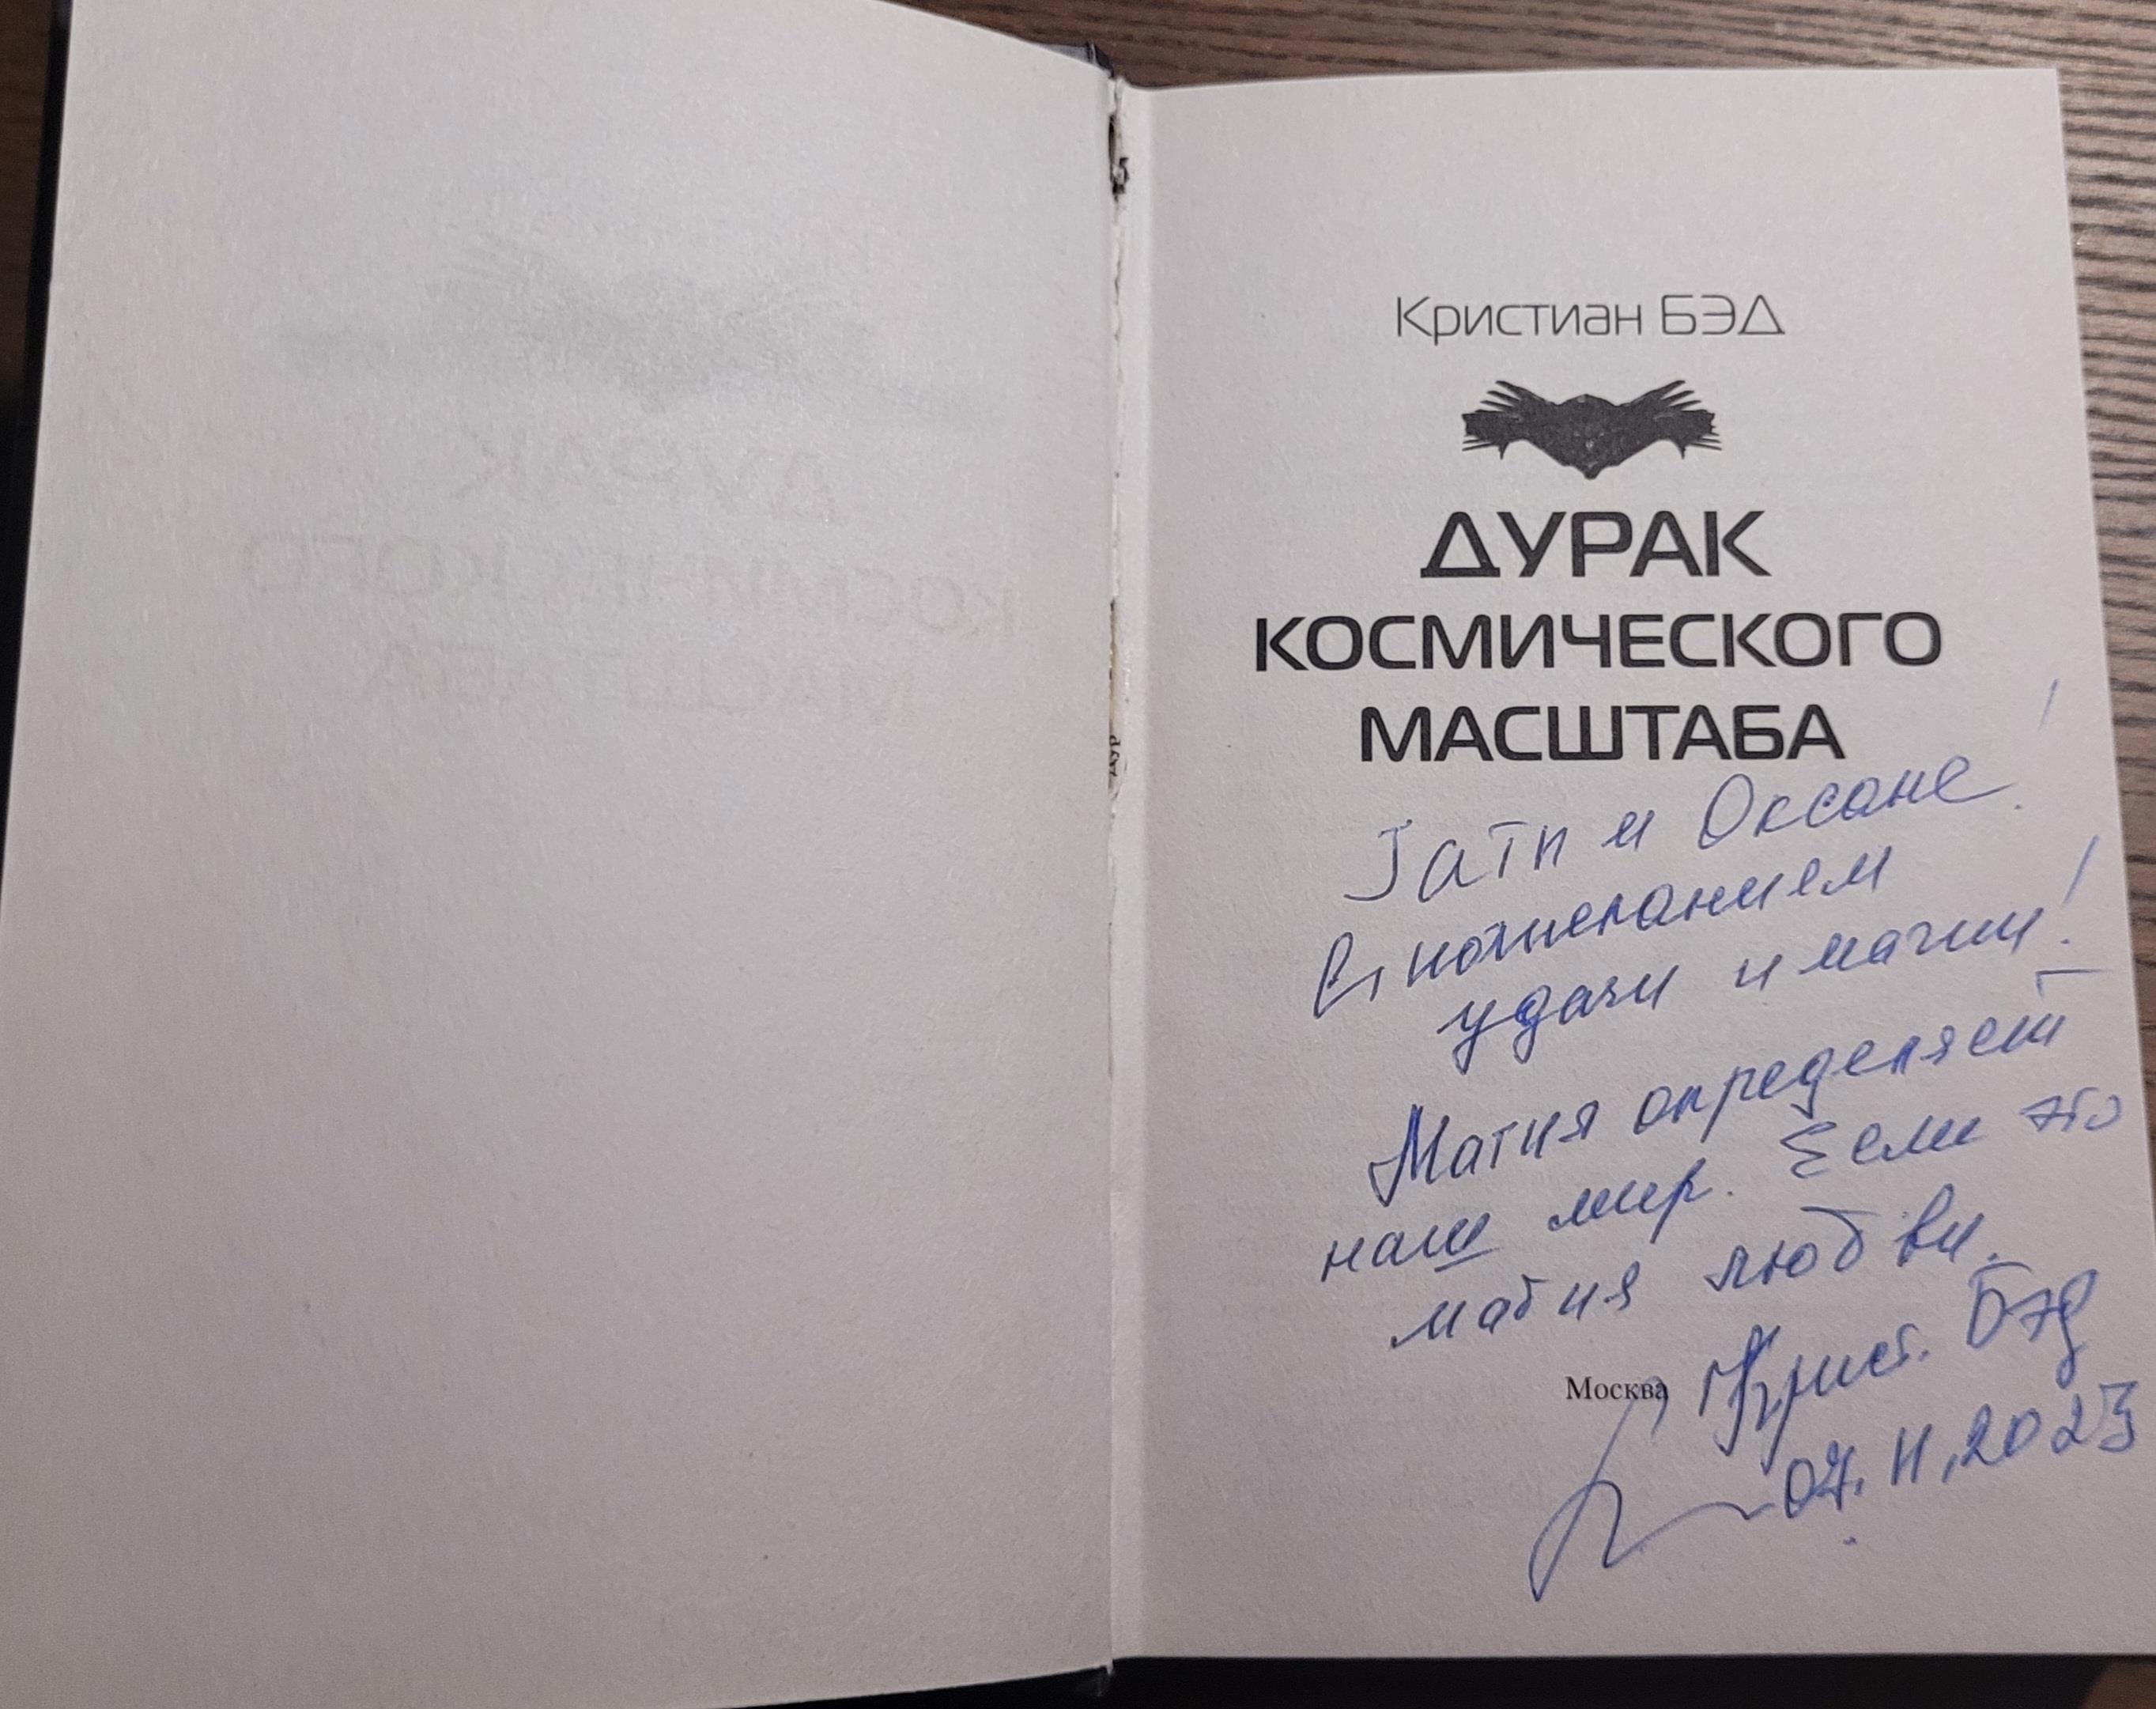 Кристиан БЭД
ДУРАК
КОСМИЧЕСКОГО
МАСШТАБА
и Оксане!
с пожеланием
удачи и магии!
Магия определяет
наш мир. Если это
магия любви.
Москва
Крист. Бэд
07.11.2023